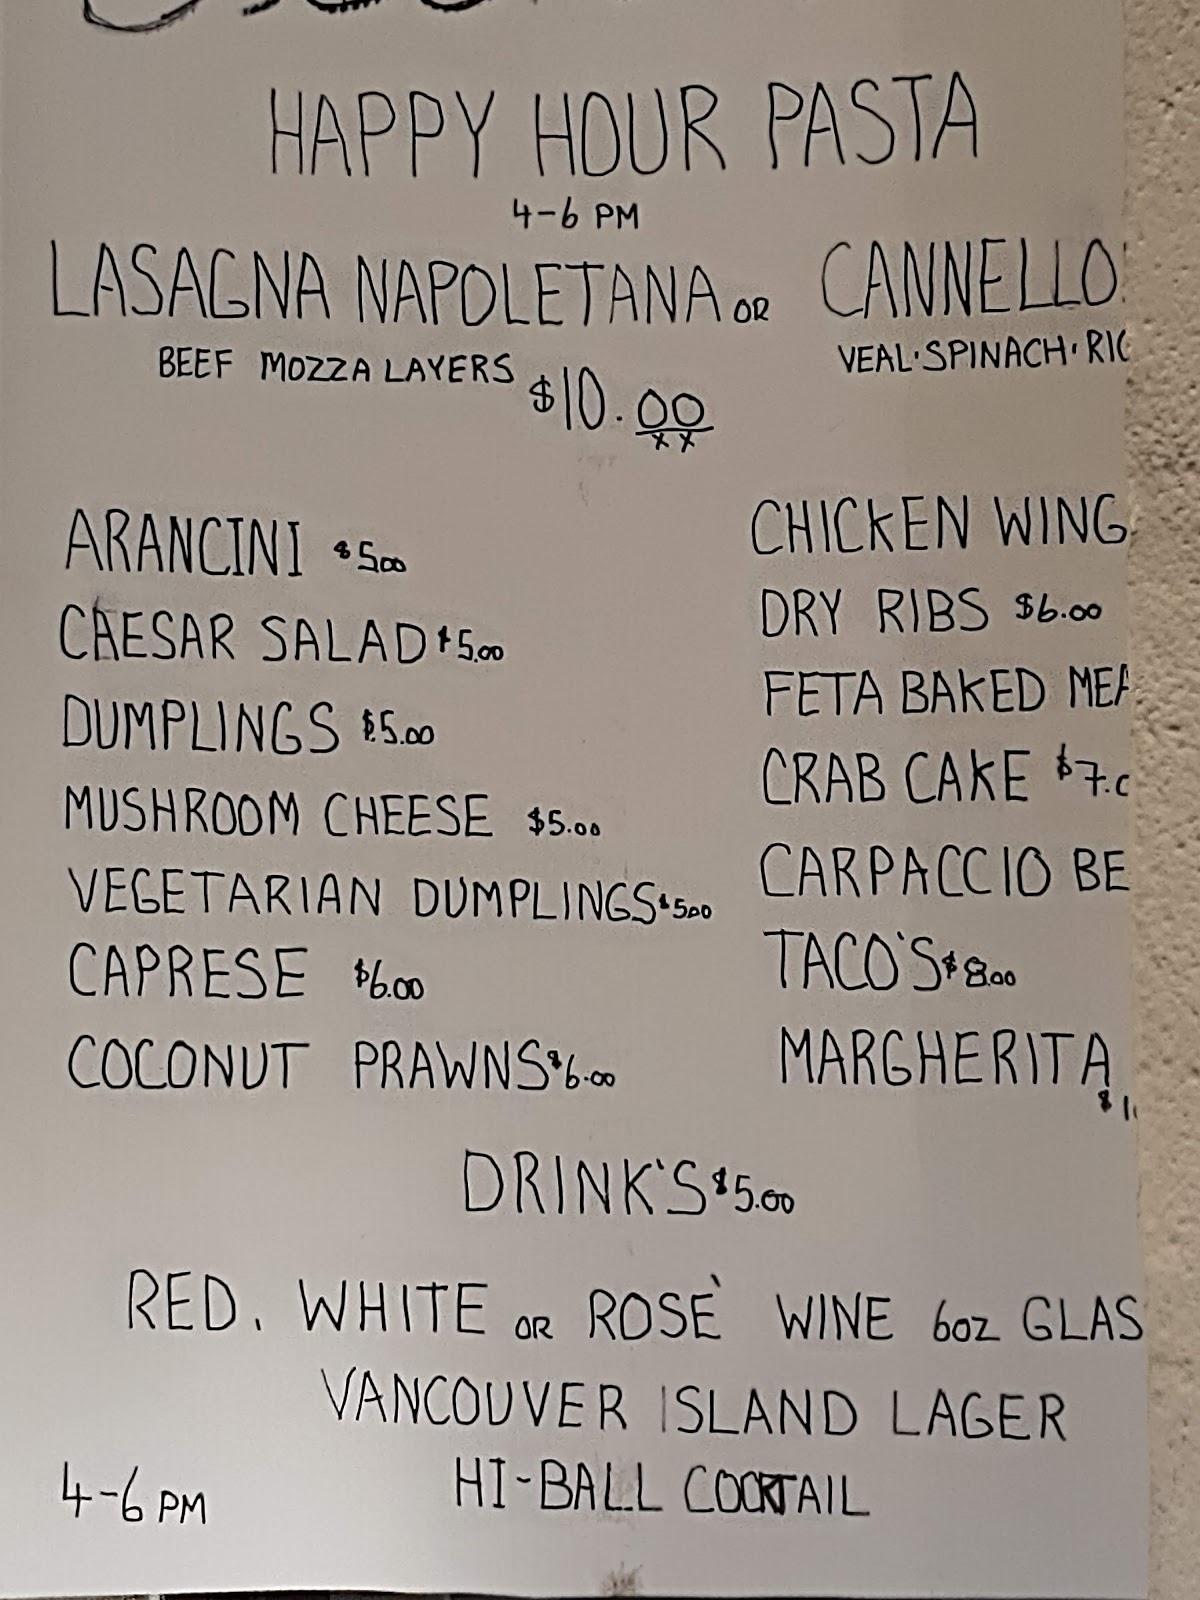 HAPPY HOUR PASTA
4-6 PM
LASAGNA NAPOLETANA OR CANNELLO
BEEF MOZZA LAYERS VEAL·SPINACH·RIC
$10.00
ARANCINI $500
CHICKEN WING
CAESAR SALAD $5.00
DRY RIBS $6.00
DUMPLINGS $5.00
FETA BAKED MEA
MUSHROOM CHEESE $5.00
CRAB CAKE $7.0
VEGETARIAN DUMPLINGS $500
CARPACCIO BE
CAPRESE $6.00
TACO'S $8.00
COCONUT PRAWNS $6.00
MARGHERITA
DRINK'S $5.00
RED. WHITE OR ROSÈ WINE 6OZ GLAS
VANCOUVER ISLAND LAGER
HI-BALL COCKTAIL
4-6 PM